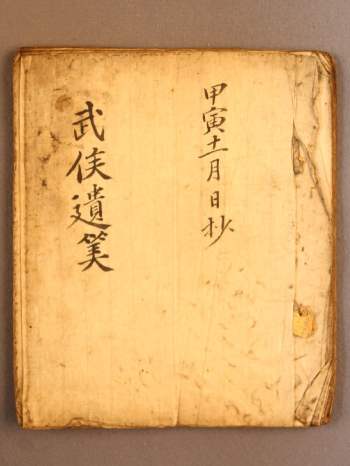 甲寅十一月 日抄
武侯遺